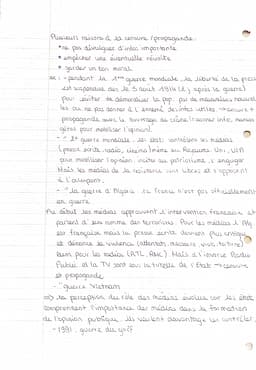 Plusieurs raisons à la censure / propagande:
• ne pas divulguer d'infos importante
• empêcher une éventuelle révolte
• garder un bon moral
ex: - pendant la 1ère guerre mondiale, la liberté de la presse
est suspendue dès le 5 août 1914 (2j après la guerre)
pour éviter de démoraliser la pop. par de mauvaises nouvelles
ou de ne pas donner à l'ennemi des infos utiles → censure +
propagande avec le bourrage de crâne (
pour mobiliser l'opinion).
- 2e guerre mondiale, les états contrôlent les médias
(presse écrite, radio, cinéma) même au Royaume Uni, USA
pour mobiliser l'opinion, inciter au patriotisme, s'engager
Mais les médias de la résistance sont libres et s'opposent
à l'occupant.
- la guerre d'Algérie, la France n'est pas officiellement
en guerre.
Au début les médias approuvent l'intervention française et
parlent d'eux comme des terroristes. Pour les médias, l'Alg
est française mais la presse écrite devient plus critique
et dénonce la violence (attentats, massacre, viols, torture)
bien pour les radios (RTL, RMC). Mais à l'inverse Radio
Public et la TV sont sous la tutelle de l'État → censure
et propagande
- guerre Vietnam
=> la perception du rôle des médias évolue car les états
comprennent l'importance des médias dans la formation
de l'opinion publique. Ils veulent davantage les contrôler.
- 1991, guerre du golf